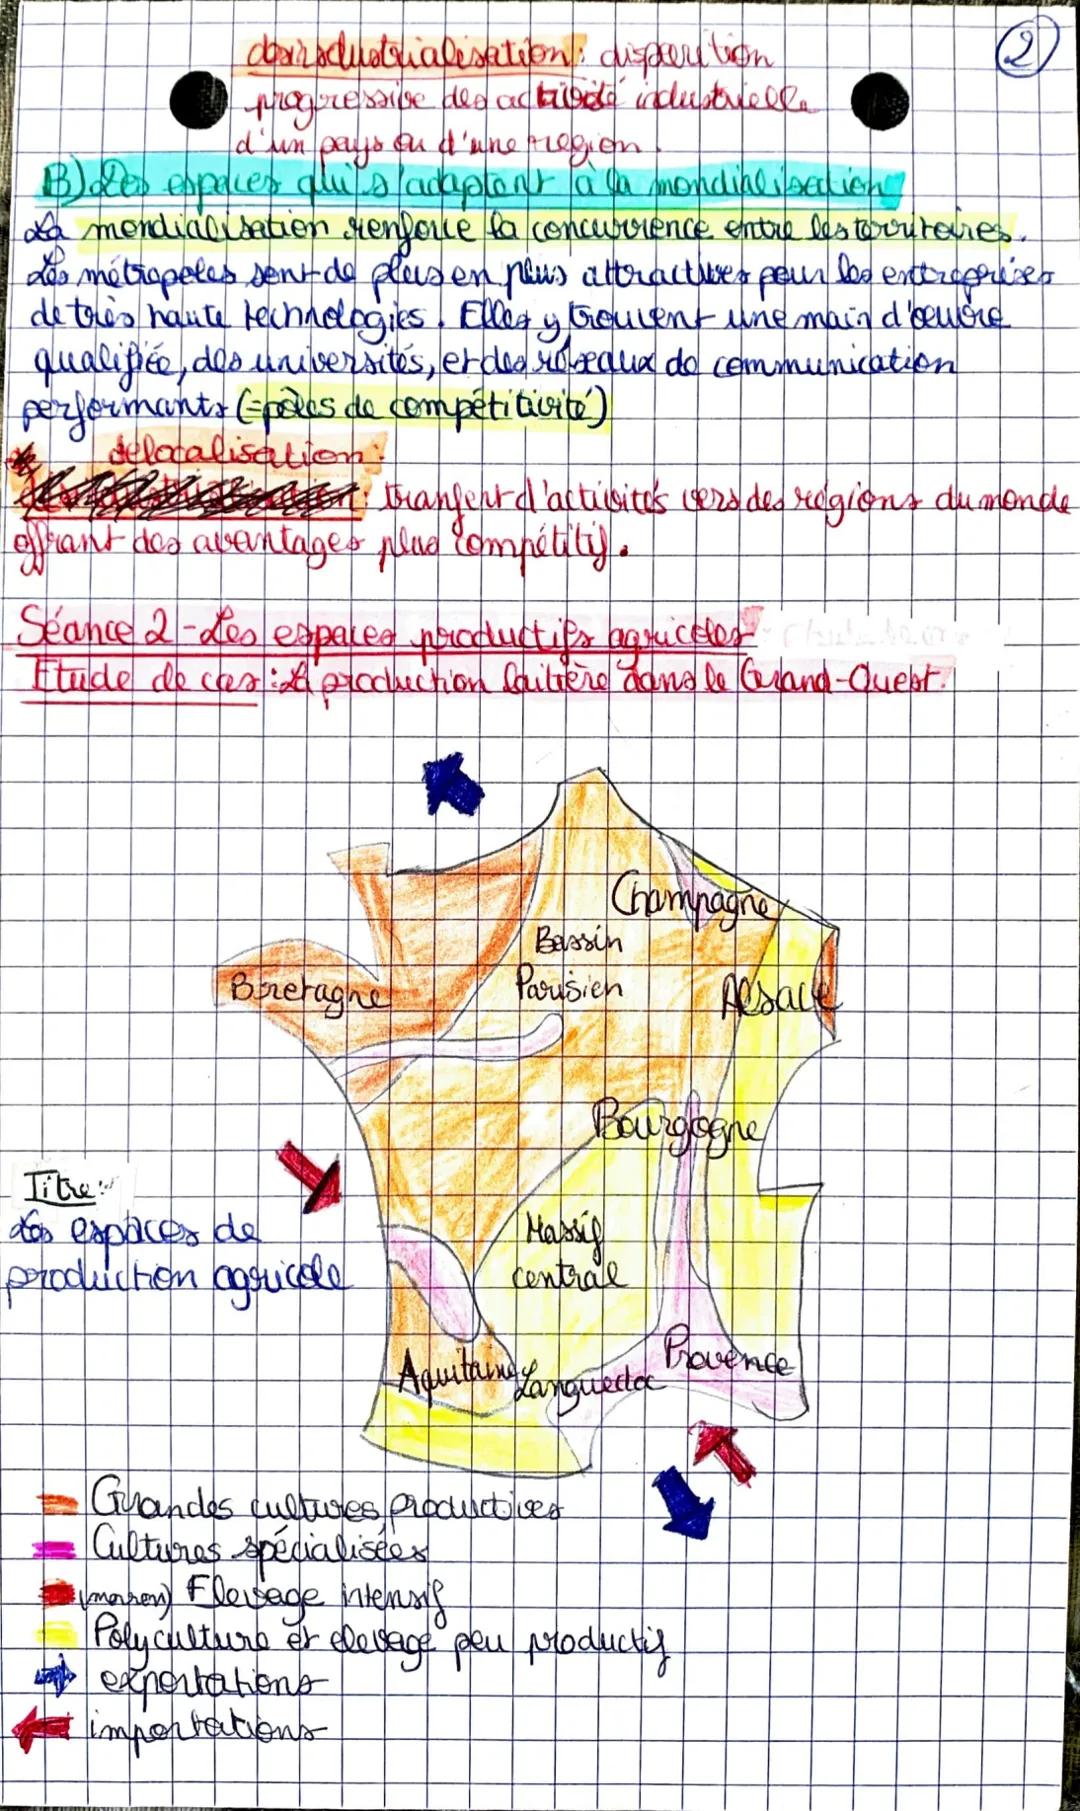 2
désindustrialisation : disparition
progressive des activité industrielle
d'un pays ou d'une région.
B) Les espaces qui s'adaptent à la mondialisation
La mondialisation renforce la concurrence entre les territoires.
Les métropoles sont de plus en plus attractives pour les entreprises
de très haute technologies. Elles y trouvent une main d'œuvre
qualifiée, des universités, et des réseaux de communication
performants (=pôles de compétitivité)
délocalisation :
: tranfert d'activités vers des régions du monde
offrant des avantages plus compétitif.
Séance 2 - Les espaces productifs agricoles
Etude de cas : La production laitière dans le Grand-Ouest.
Champagne
Bassin
Parisien
Bretagne
Alsace
Bourgogne
Titre :
Les espaces de
production agricole
Massif
central
Provence
Aquitaine
Languedoc
Grandes cultures productives
Cultures spécialisées
(marron) Elevage intensif
Polyculture et elevage peu productif
exportations
importations